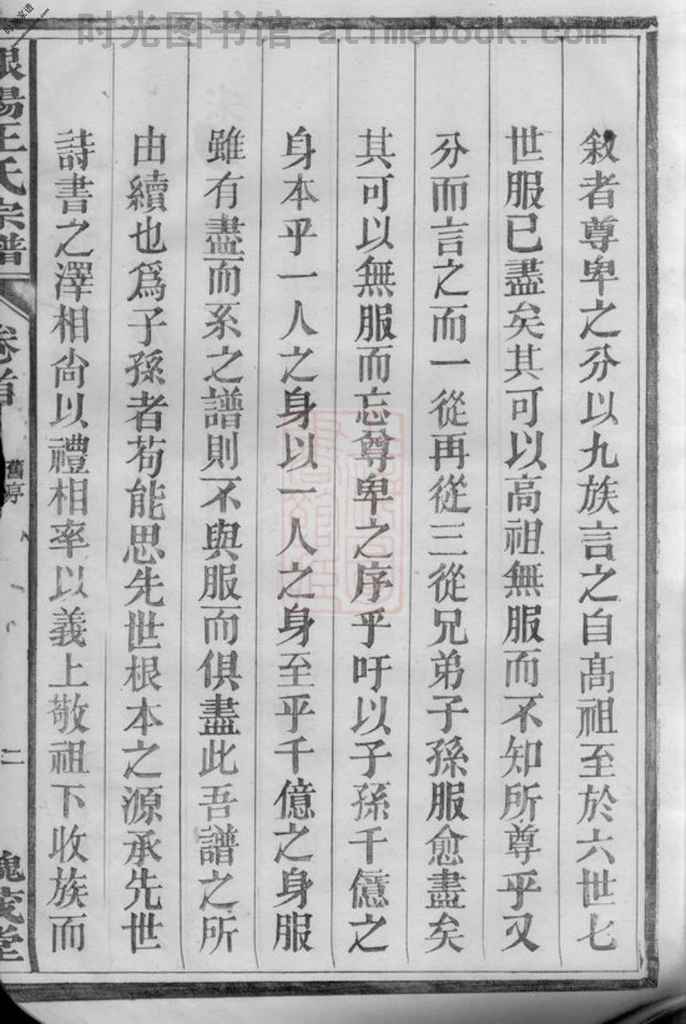 时光图书馆 - atimebook.com -
敘者尊卑之分以九族言之自髙祖至於六世七
世服已盡矣其可以高祖無服而不知所尊乎又
分而言之而一從再從三從兄弟子孫服愈盡矣
其可以無服而忘尊卑之序乎吁以子孫千億之
身本乎一人之身以一人之身至乎千億之身服
雖有盡而系之譜則不與服而俱盡此吾譜之所
由續也爲子孫者苟能思先世根本之源承先世
詩書之澤相尙以禮相率以義上敬祖下收族而
陽王氏宗譜
卷首
舊序
二
槐茂堂